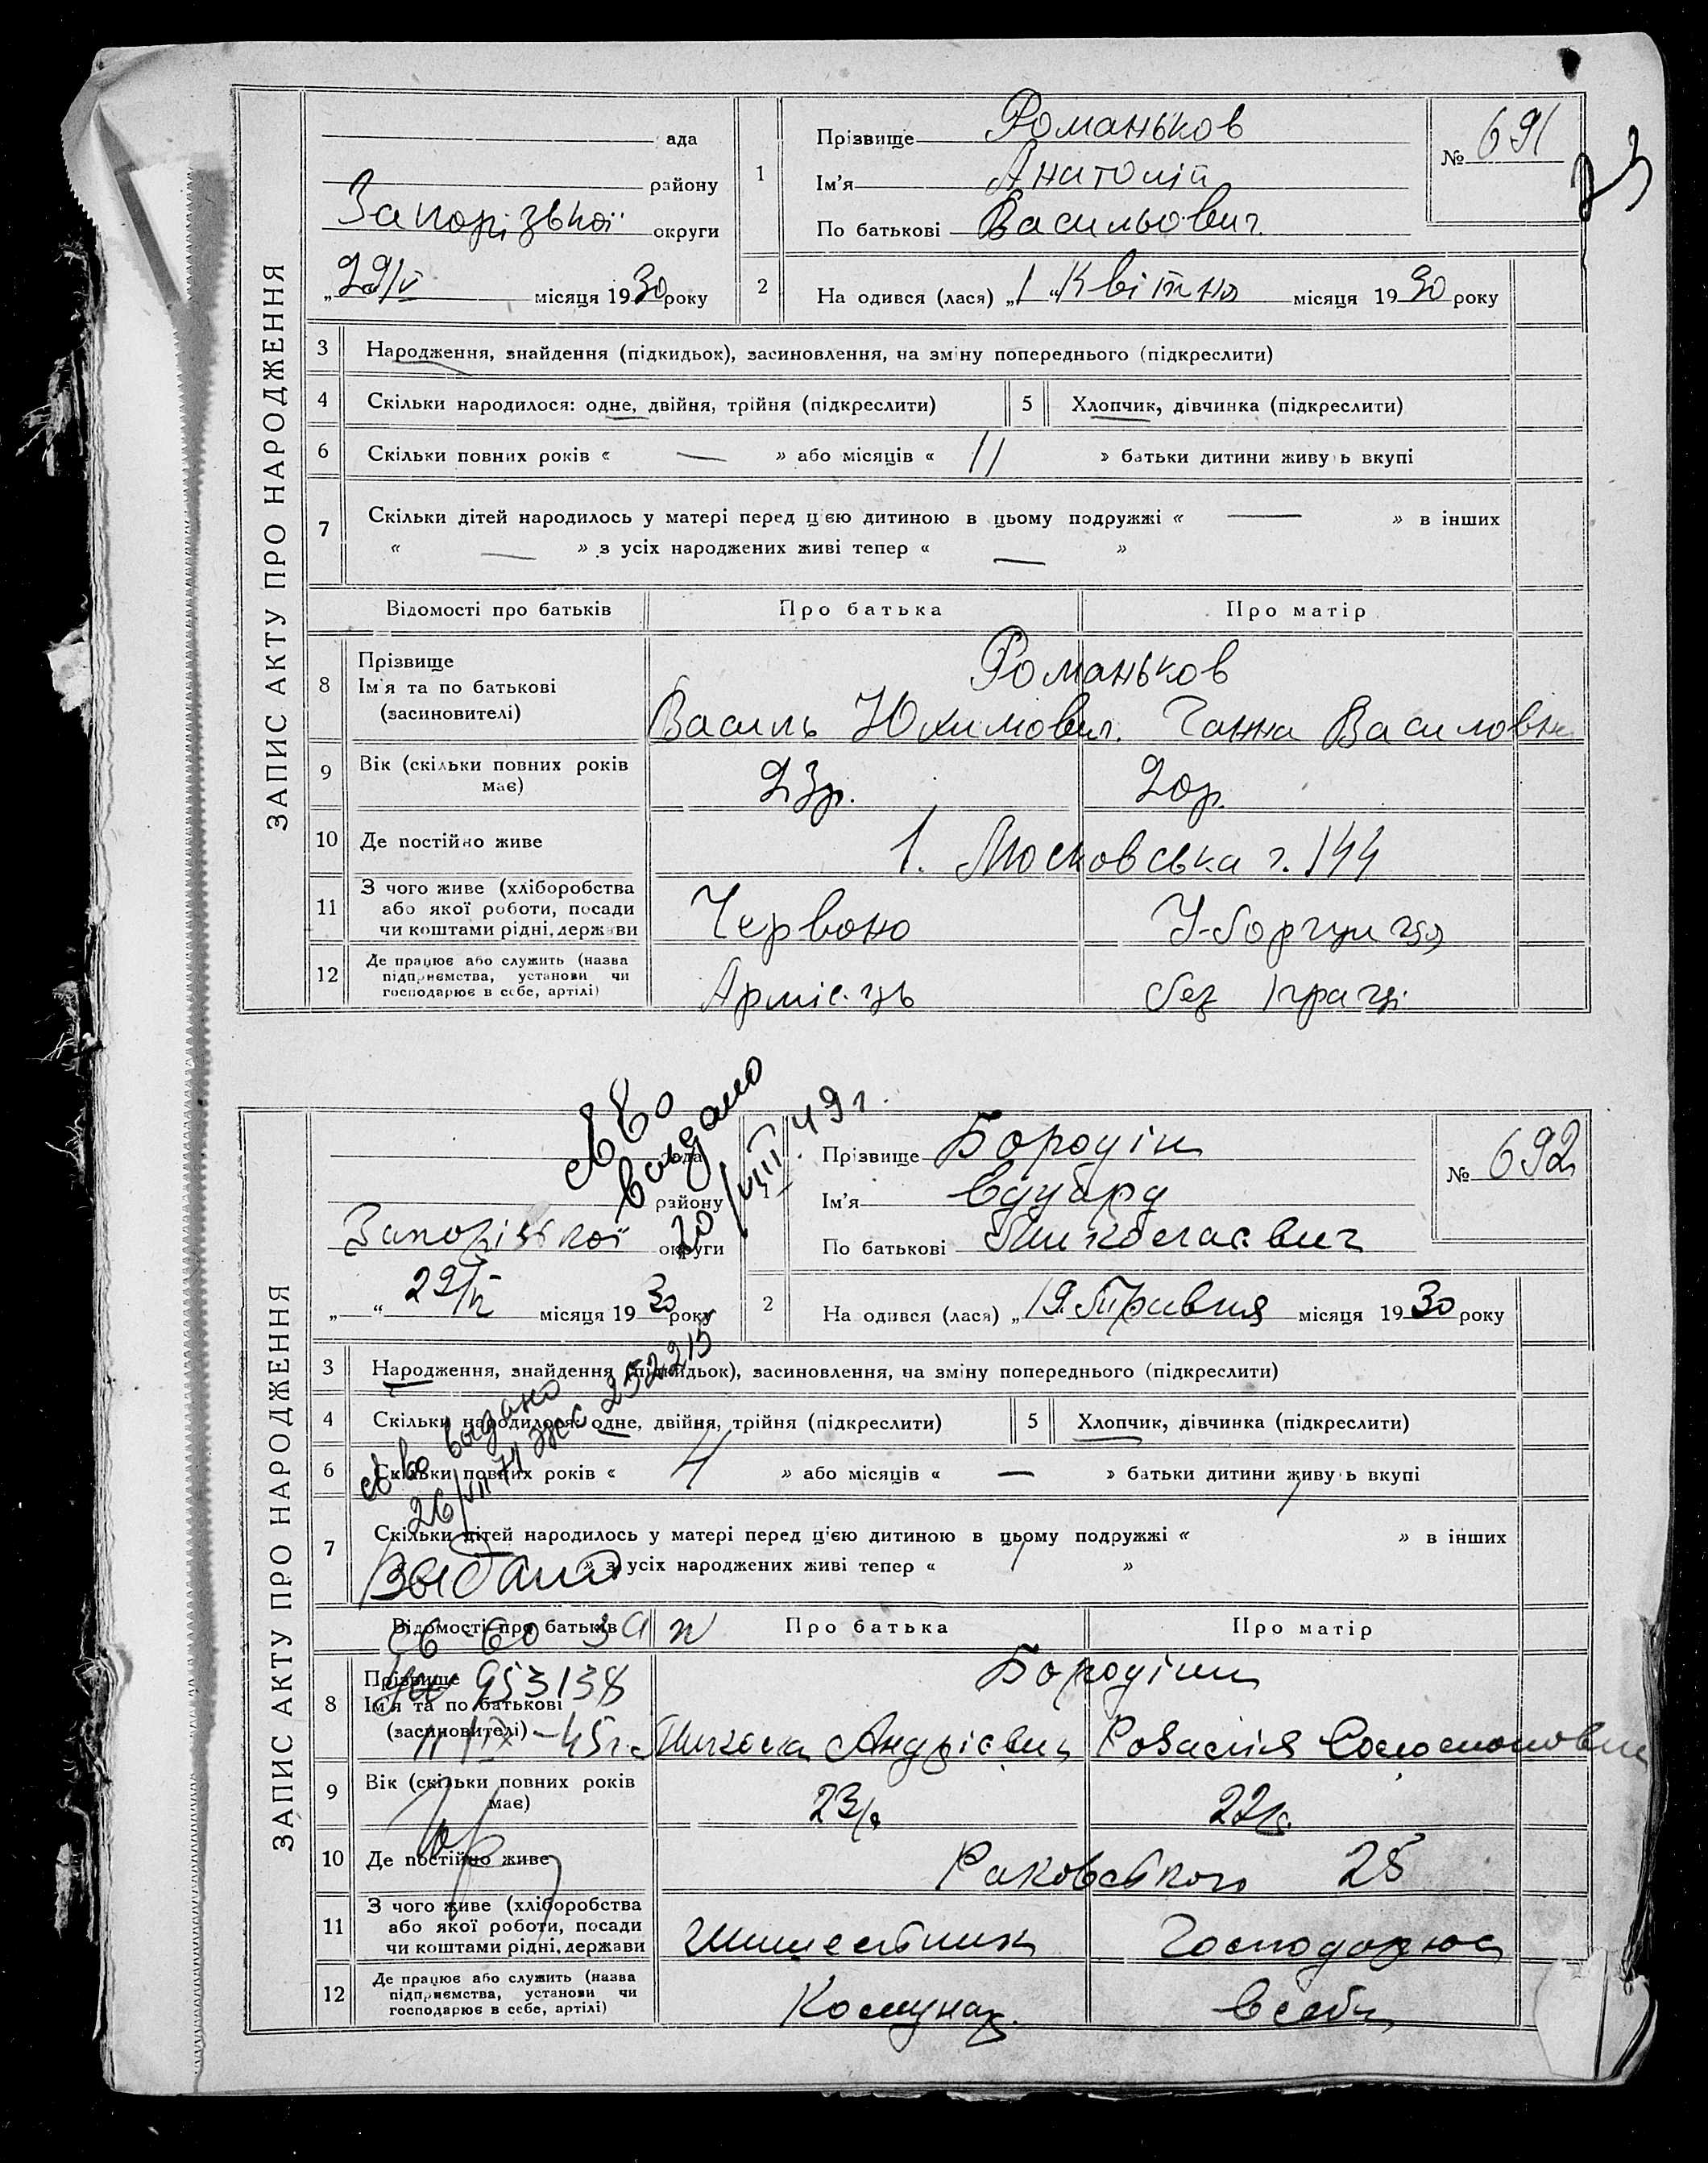 ЗАПИС АКТУ ПРО НАРОДЖЕННЯ
ада
району
Запорізької округи
„29/V місяця 1930 року
1
Прізвище Романьков
Ім'я Анатолій
По батькові Васильович
№ 691
2
На одився (лася) „1“ Квітня місяця 1930 року
3 Народження, знайдення (підкидьок), засиновлення, на зміну попереднього (підкреслити)
4 Скільки народилося: одне, двійня, трійня (підкреслити) 5 Хлопчик, дівчинка (підкреслити)
6 Скільки повних років « — » або місяців « 11 » батьки дитини живу ь вкупі
7 Скільки дітей народилось у матері перед цією дитиною в цьому подружжі « — » в інших
« — » з усіх народжених живі тепер « — »
Відомості про батьків Про батька Про матір
8 Прізвище
Ім'я та по батькові
(засиновителі)
Романьков
Василь Юхимович. Ганна Василовна
9 Вік (скільки повних років
має)
23р. 20р.
10 Де постійно живе 1. Московська г. 144
11 З чого живе (хліборобства
або якої роботи, посади
чи коштами рідні, держави
Червоно У-боргуицо
12 Де працює або служить (назва
підприємства, установи чи
господарює в себе, артілі)
Арміє.ць без праці
ЗАПИС АКТУ ПРО НАРОДЖЕННЯ
ада
району
Запорізької округи
„ “ 29/V місяця 1930 року
св во
выдано
20/VIII 49 г.
1
Прізвище Бородін
Ім'я Едуард
По батькові Миколаєвич
№ 692
2
На одився (лася) „19. Травня місяця 1930 року
3 Народження, знайдення (підкидьок), засиновлення, на зміну попереднього (підкреслити)
4 Скільки народилося: одне, двійня, трійня (підкреслити) 5 Хлопчик, дівчинка (підкреслити)
6 Скільки повних років « 4 » або місяців « — » батьки дитини живу ь вкупі
св-во выдано
26/VII 74 ЖС 252215
7 Скільки дітей народилось у матері перед цією дитиною в цьому подружжі « » в інших
» з усіх народжених живі тепер « »
Выдано
св-во за №
953138
11/IX-45г.
Відомості про батьків Про батька Про матір
8 Прізвище
Ім'я та по батькові
(засиновителі)
Бородіни
Микола Андрієвич Розалія Соломоновна
9 Вік (скільки повних років
має)
23р. 22р.
10 Де постійно живе Раковського 25
11 З чого живе (хліборобства
або якої роботи, посади
чи коштами рідні, держави
Господарює
12 Де працює або служить (назва
підприємства, установи чи
господарює в себе, артілі)
Комунар. в себе